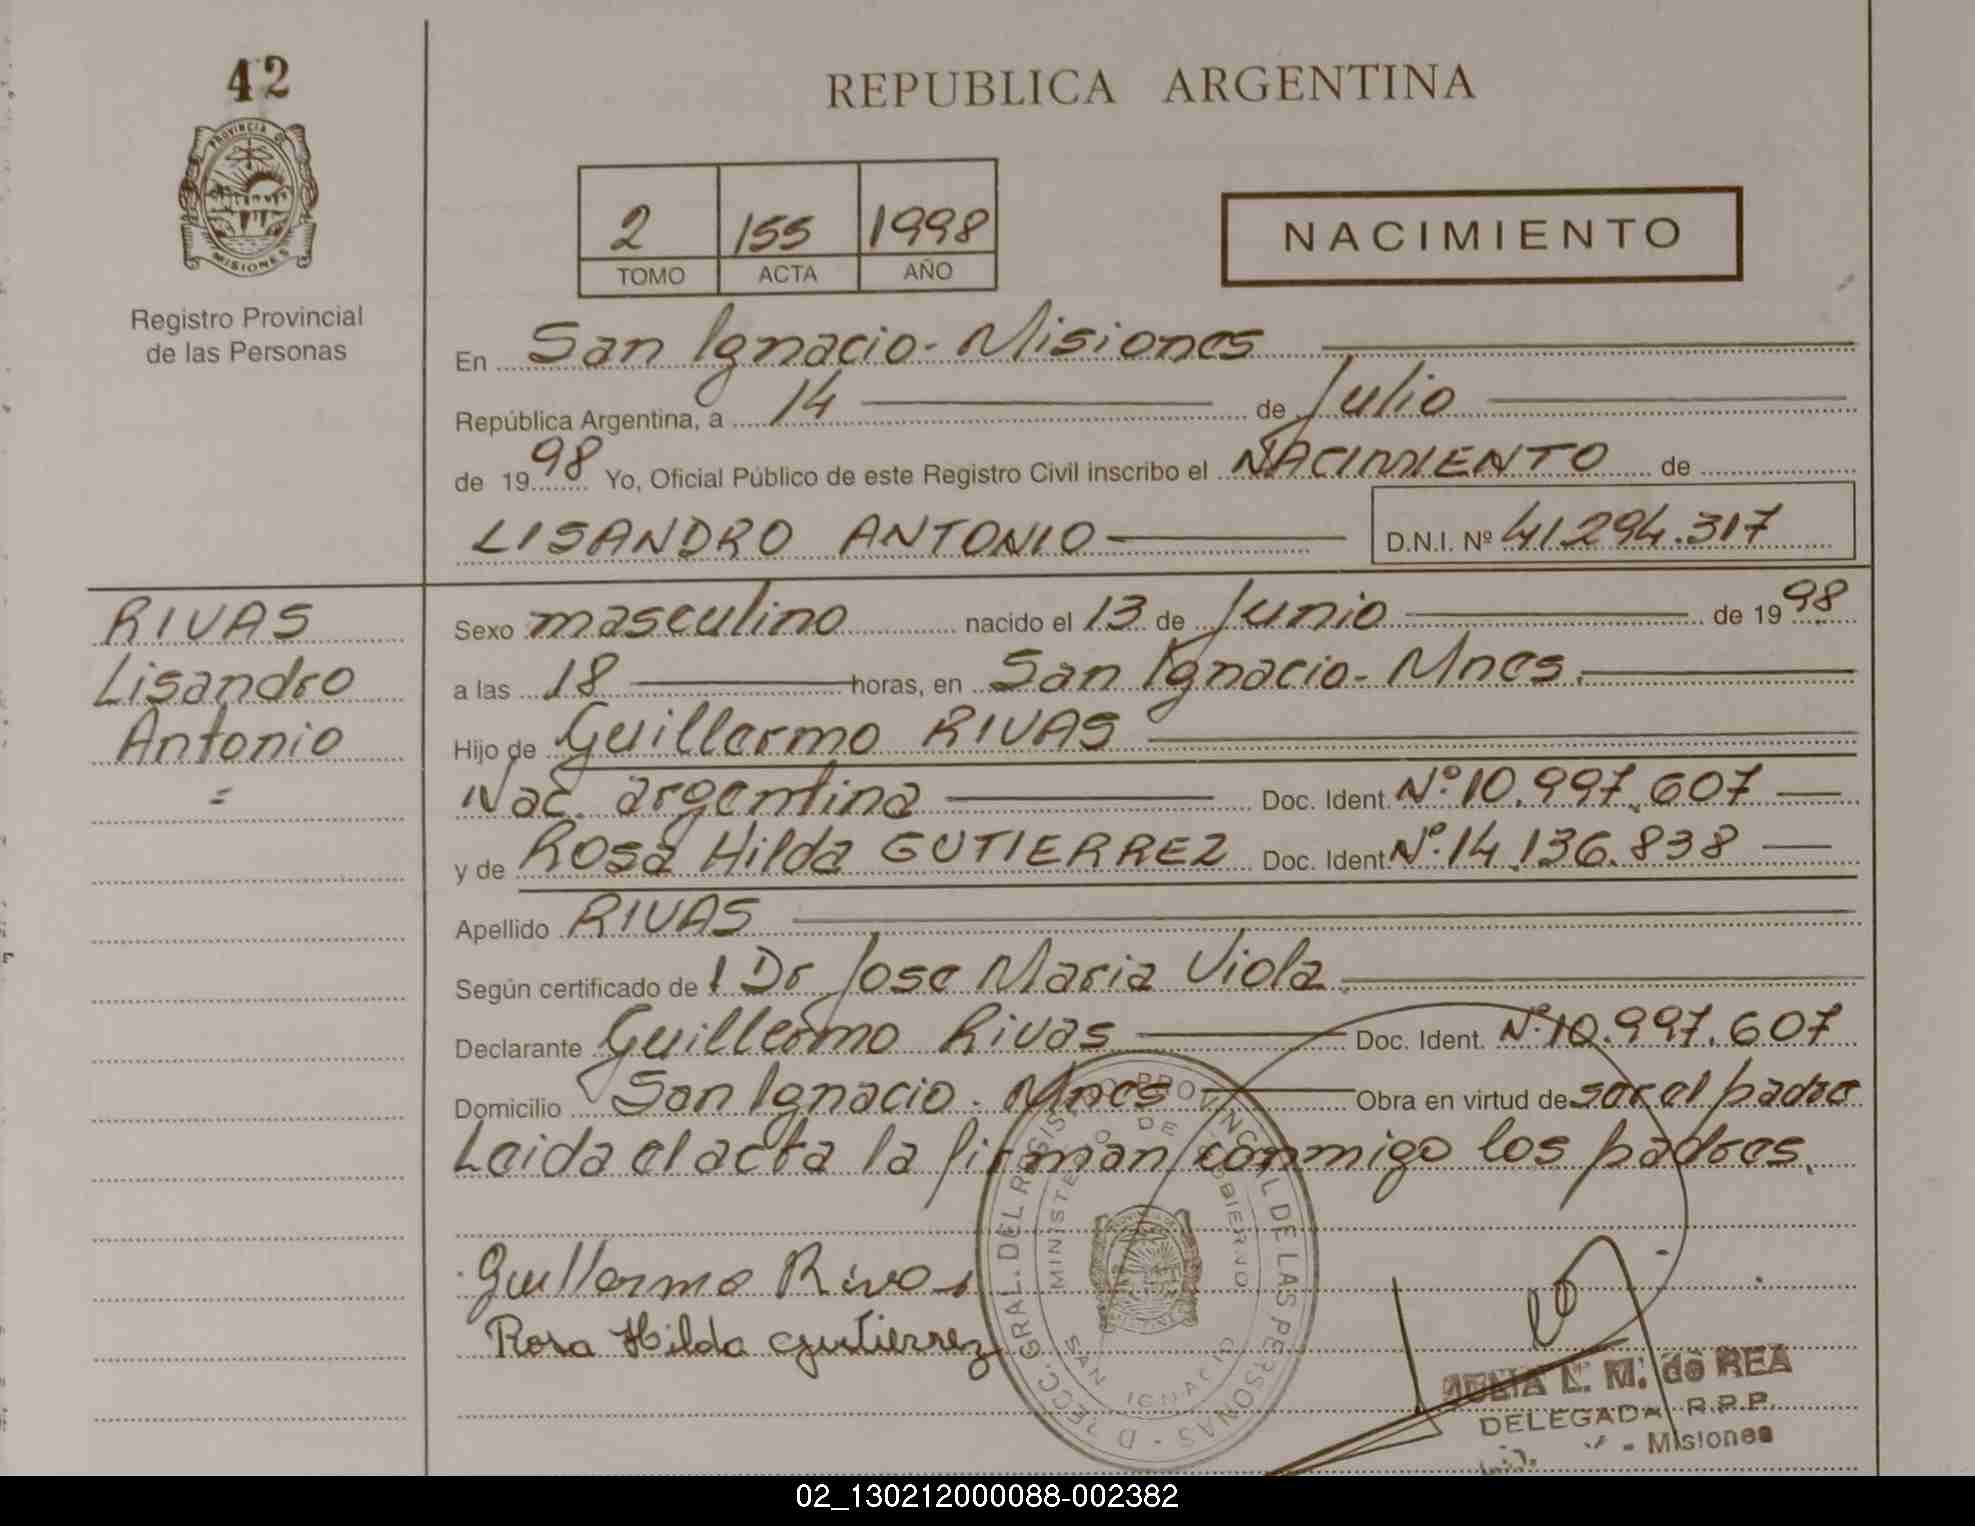 42
PROVINCIA DE
MISIONES
Registro Provincial
de las Personas
REPUBLICA ARGENTINA
2 155 1998
TOMO ACTA AÑO
NACIMIENTO
En San Ignacio - Misiones
República Argentina, a 14 de Julio
de 1998 Yo, Oficial Público de este Registro Civil inscribo el NACIMIENTO de
LISANDRO ANTONIO D.N.I. Nº 41.294.317
RIVAS
Lisandro
Antonio
Sexo masculino nacido el 13 de Junio de 1998
a las 18 horas, en San Ignacio - Mnes.
Hijo de Guillermo RIVAS
Nac. argentina Doc. Ident. Nº 10.997.607
y de Rosa Hilda GUTIERREZ Doc. Ident. Nº 14.136.838
Apellido RIVAS
Según certificado de l Dr Jose Maria Viola.
Declarante Guillermo Rivas Doc. Ident. Nº 10.997.607
Domicilio San Ignacio - Mnes Obra en virtud de ser el padre
Leida el acta la firman conmigo los padres.
Guillermo Rivas
Rosa Hilda Gutierrez
DIRECC. GRAL. DEL REGISTRO PROVINCIAL DE LAS PERSONAS
MINISTERIO DE GOBIERNO
SAN IGNACIO
L. M. de REA
DELEGADA R.P.P.
- Misiones
02_130212000088-002382